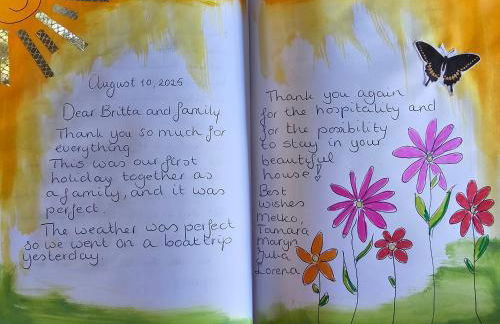 August 10, 2025
Dear Britta and family
Thank you so much for
everything
This was our first
holiday together as
a family, and it was
perfect.
The weather was perfect
so we went on a boat trip
yesterday.
Thank you again
for the hospitality and
for the posibility
to stay in your
beautyful
house!
Best
wishes
Melko,
Tamara
Maryn
Yulia
Lorena